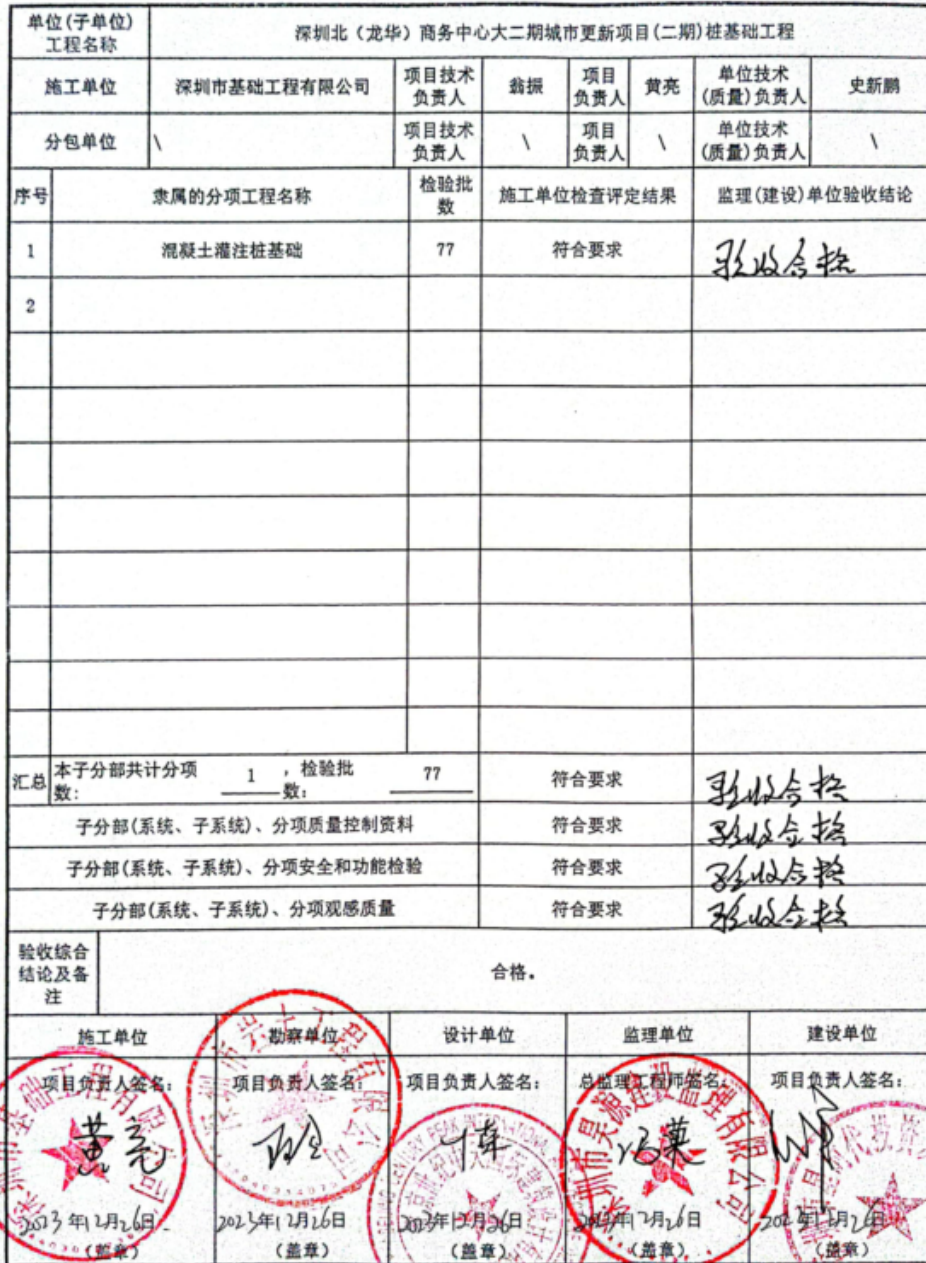 单位(子单位)
工程名称
深圳北（龙华）商务中心大二期城市更新项目(二期)桩基础工程
施工单位
深圳市基础工程有限公司
项目技术
负责人
翁振
项目
负责人
黄亮
单位技术
(质量)负责人
史新鹏
分包单位
\
项目技术
负责人
\
项目
负责人
\
单位技术
(质量)负责人
\
序号
隶属的分项工程名称
检验批
数
施工单位检查评定结果
监理(建设)单位验收结论
1
混凝土灌注桩基础
77
符合要求
验收合格
2
汇总
本子分部共计分项
数:
1
，检验批
数:
77
符合要求
验收合格
子分部(系统、子系统)、分项质量控制资料
符合要求
验收合格
子分部(系统、子系统)、分项安全和功能检验
符合要求
验收合格
子分部(系统、子系统)、分项观感质量
符合要求
验收合格
验收综合
结论及备
注
合格。
施工单位
勘察单位
设计单位
监理单位
建设单位
项目负责人签名:
项目负责人签名:
项目负责人签名:
总监理工程师签名:
项目负责人签名:
黄亮
2023年12月26日
2023年12月26日
2023年12月26日
2023年12月26日
(盖章)
(盖章)
(盖章)
(盖章)
(盖章)
深圳市昊源建设监理有限公司